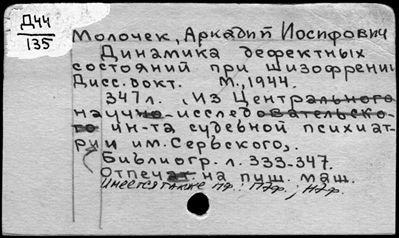 Д44
135
Молочек, Аркадий Иосифович
Динамика дефектных
состояний при шизофрении
Дисс. докт. М., 1944.
347 л. Из Центрального
научно-исследовательско-
го ин-та судебной психиат-
рии им. Сербского.
Библиогр. л. 333-347.
Отпечат. на пиш. маш.
Имеется также